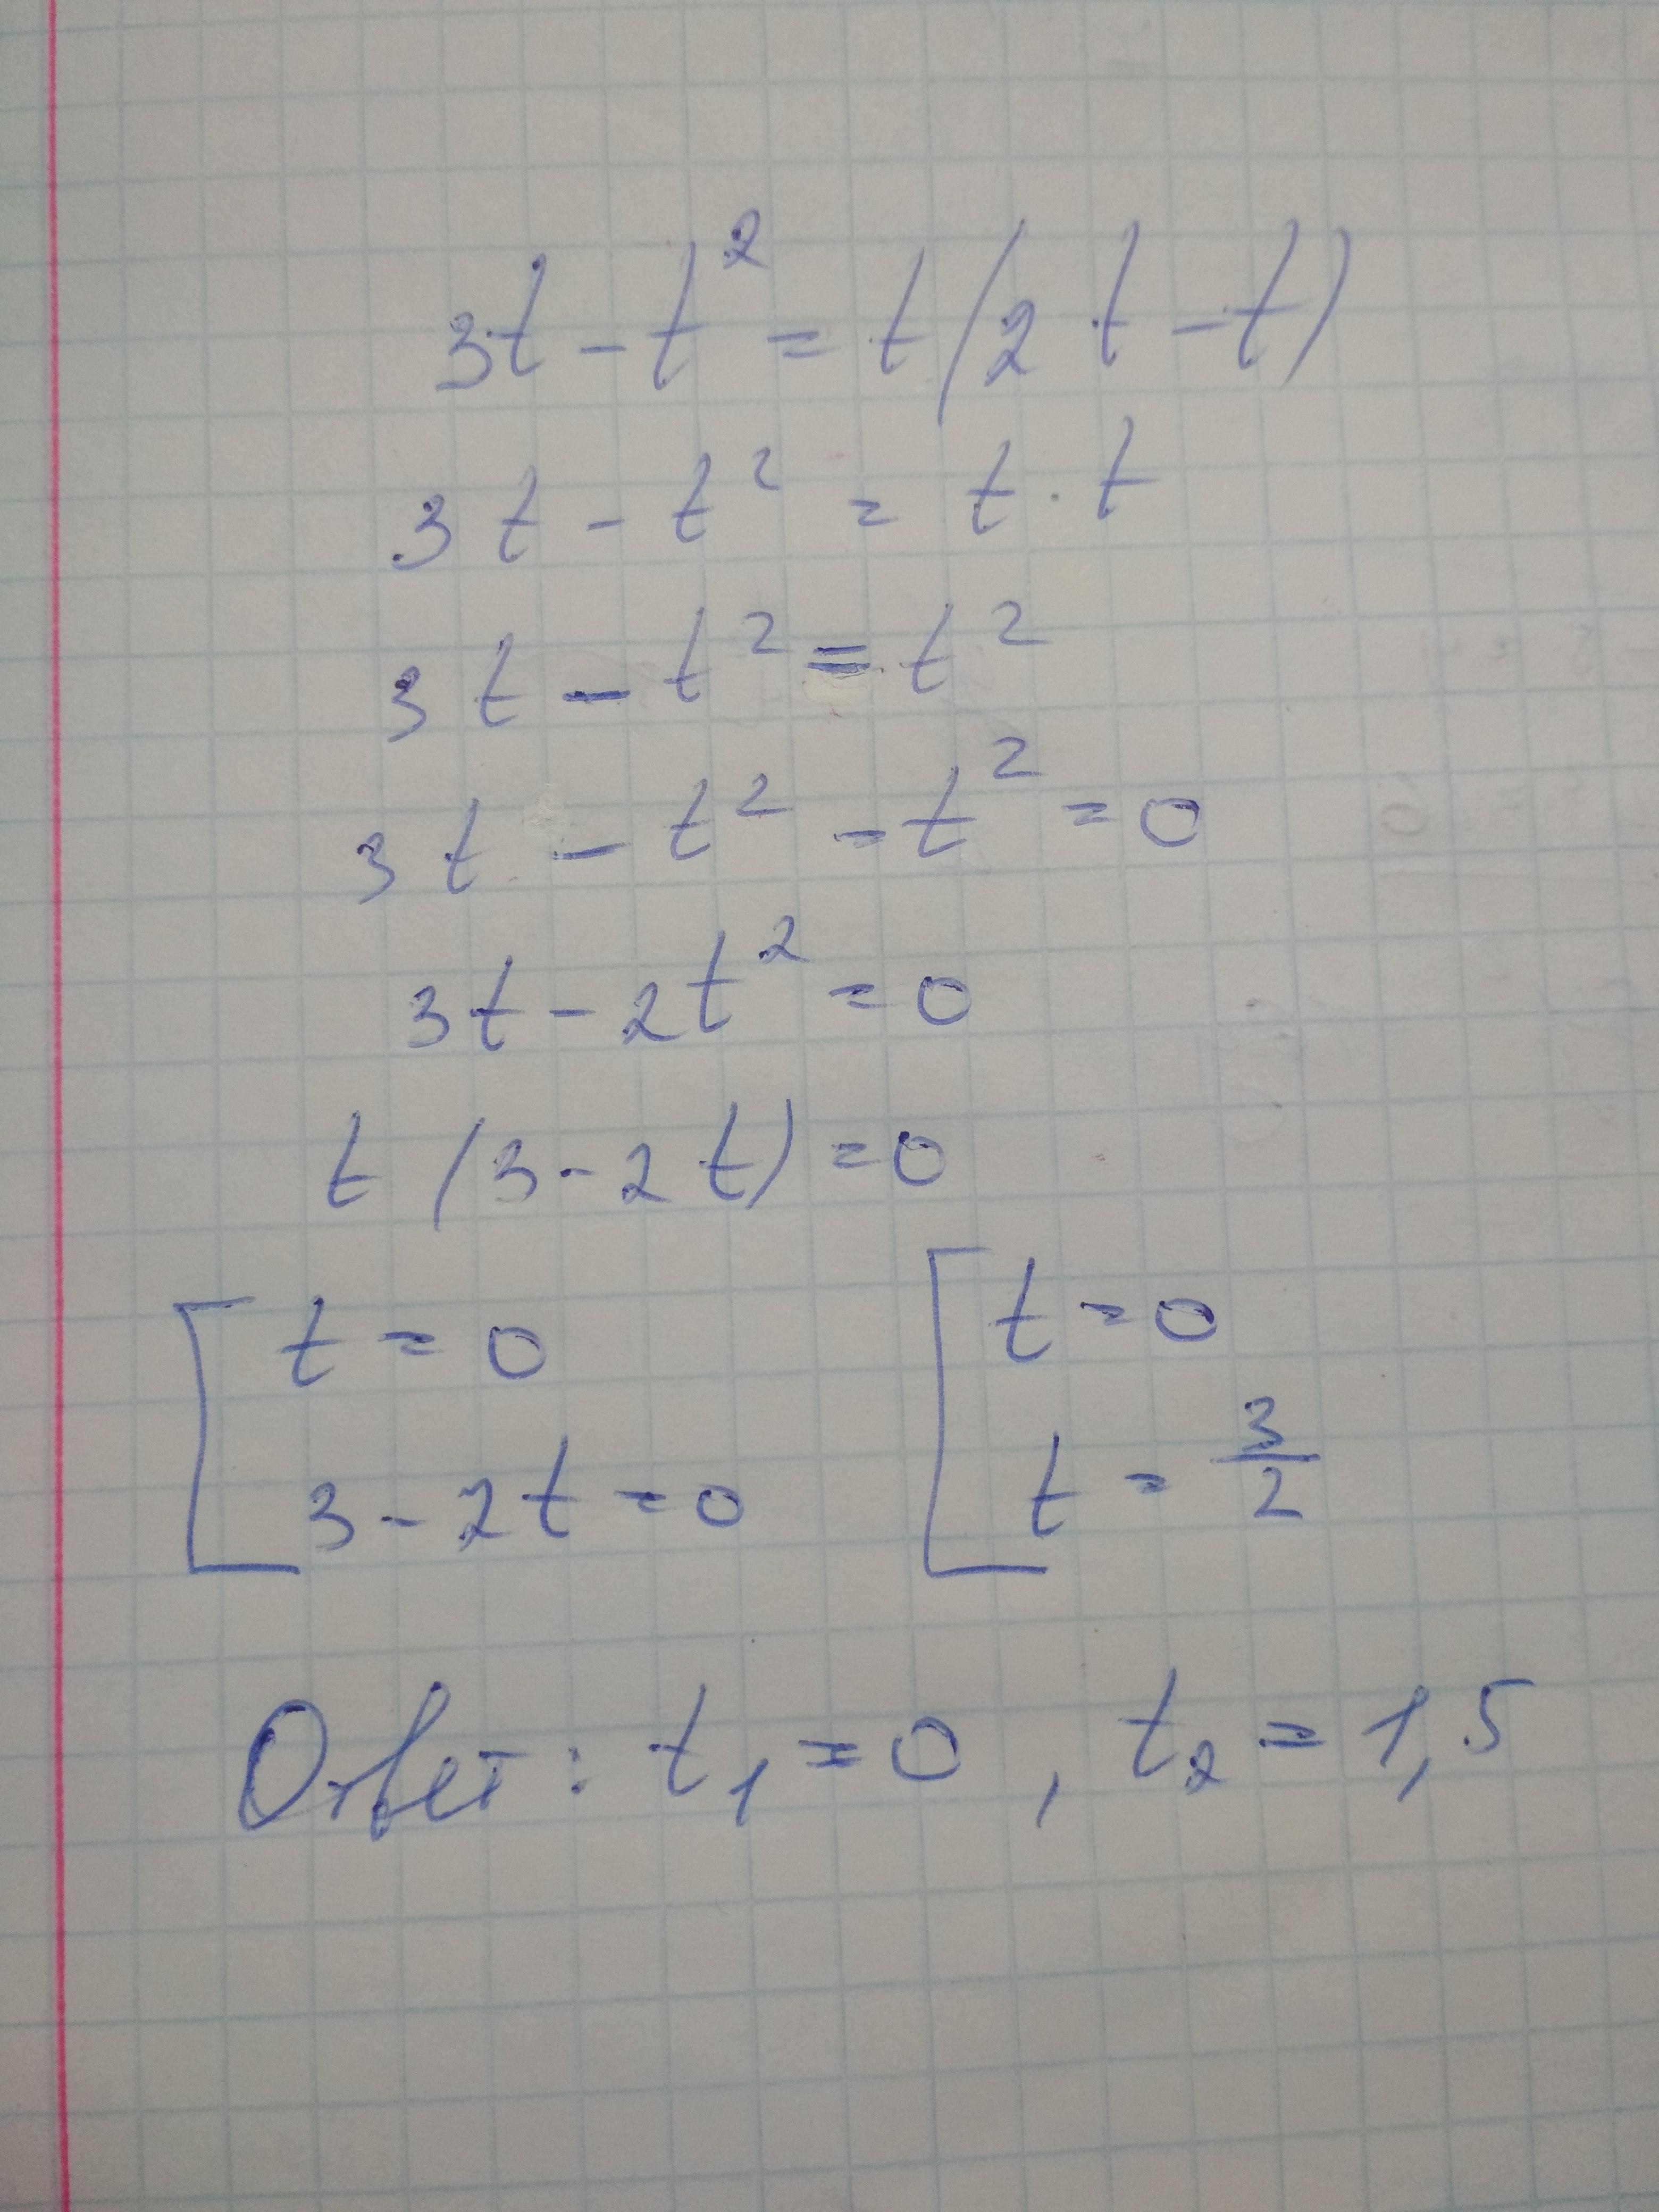 3t - t² = t(2t - t)
3t - t² = t · t
3t - t² = t²
3t - t² - t² = 0
3t - 2t² = 0
t(3 - 2t) = 0
[ t = 0 [ t = 0
3 - 2t = 0 t = 3/2
Ответ: t₁ = 0, t₂ = 1,5